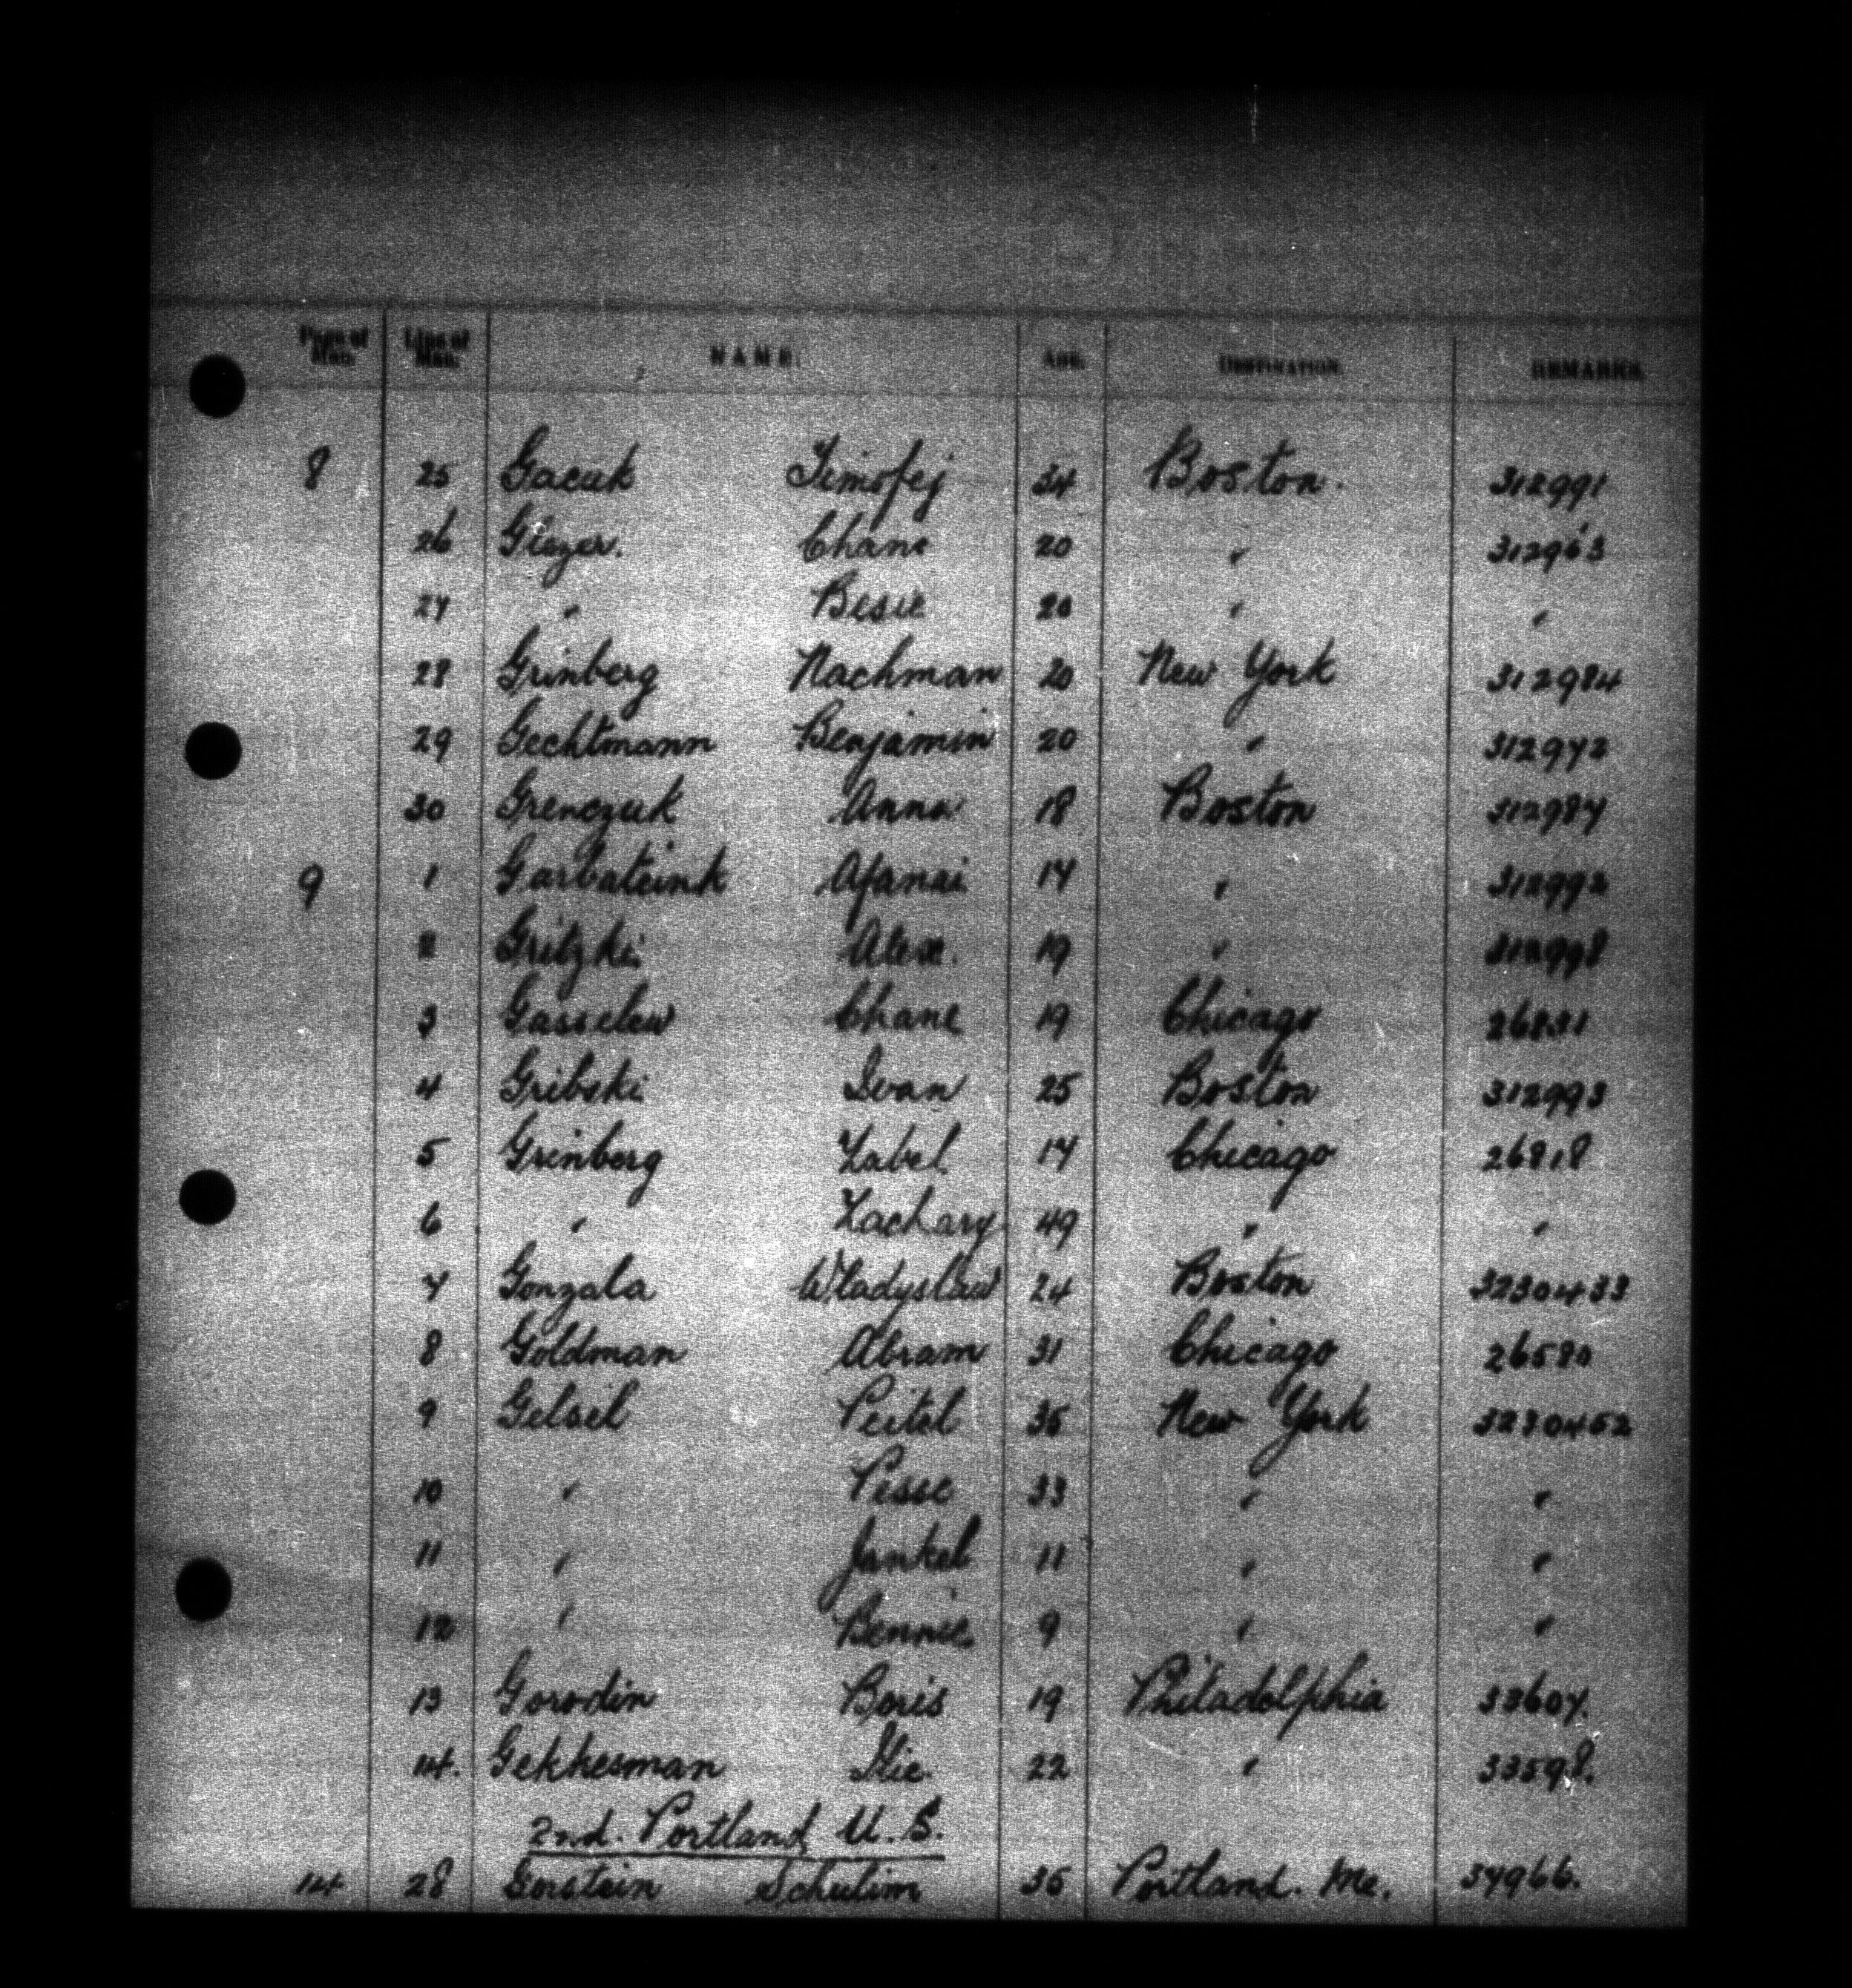 Page of Man. Line of Man. NAME. AGE. DESTINATION. REMARKS.
8 25 Gacuk Timofej 34 Boston. 312991
26 Glezer. Chane 20 " 312963
27 " Besie 20 " "
28 Grinberg Nachman 20 New York 312984
29 Gechtmann Benjamin 20 " 312972
30 Grenczuk Anna 18 Boston 312987
9 1 Garbateink Afanai 17 " 312992
2 Gritzki Alex. 19 " 312998
3 Gasselew Chane 19 Chicago 26831
4 Gribski Ivan 25 Boston 312993
5 Grinberg Zabel 17 Chicago 26818
6 " Zachary 49 " "
7 Gonzala Wladyslaw 24 Boston 3230433
8 Goldman Abram 31 Chicago 26580
9 Gelsel Peitel 35 New York 3230452
10 " Pesse 33 " "
11 " Jankel 11 " "
12 " Bennie 9 " "
13 Gorodin Boris 19 Philadelphia 33607.
14. Gekhesman Ilie. 22 " 33598.
2nd. Portland U.S.
14 28 Gorstein Schulim 35 Portland. Me. 37966.